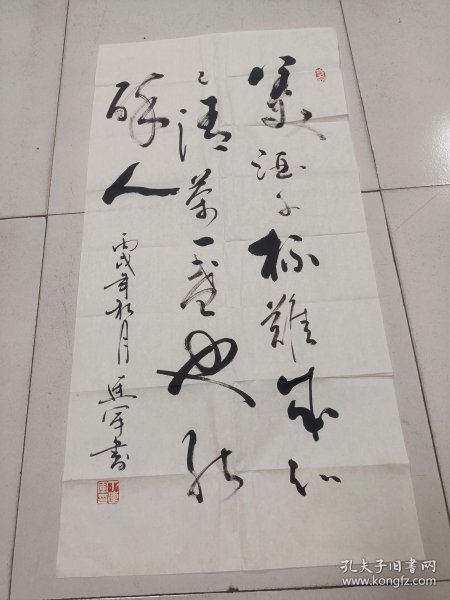 美酒千杯难成知
己清茶一盏也能
醉人
丙戌年秋月建军书
孔夫子旧书网
www.kongfz.com